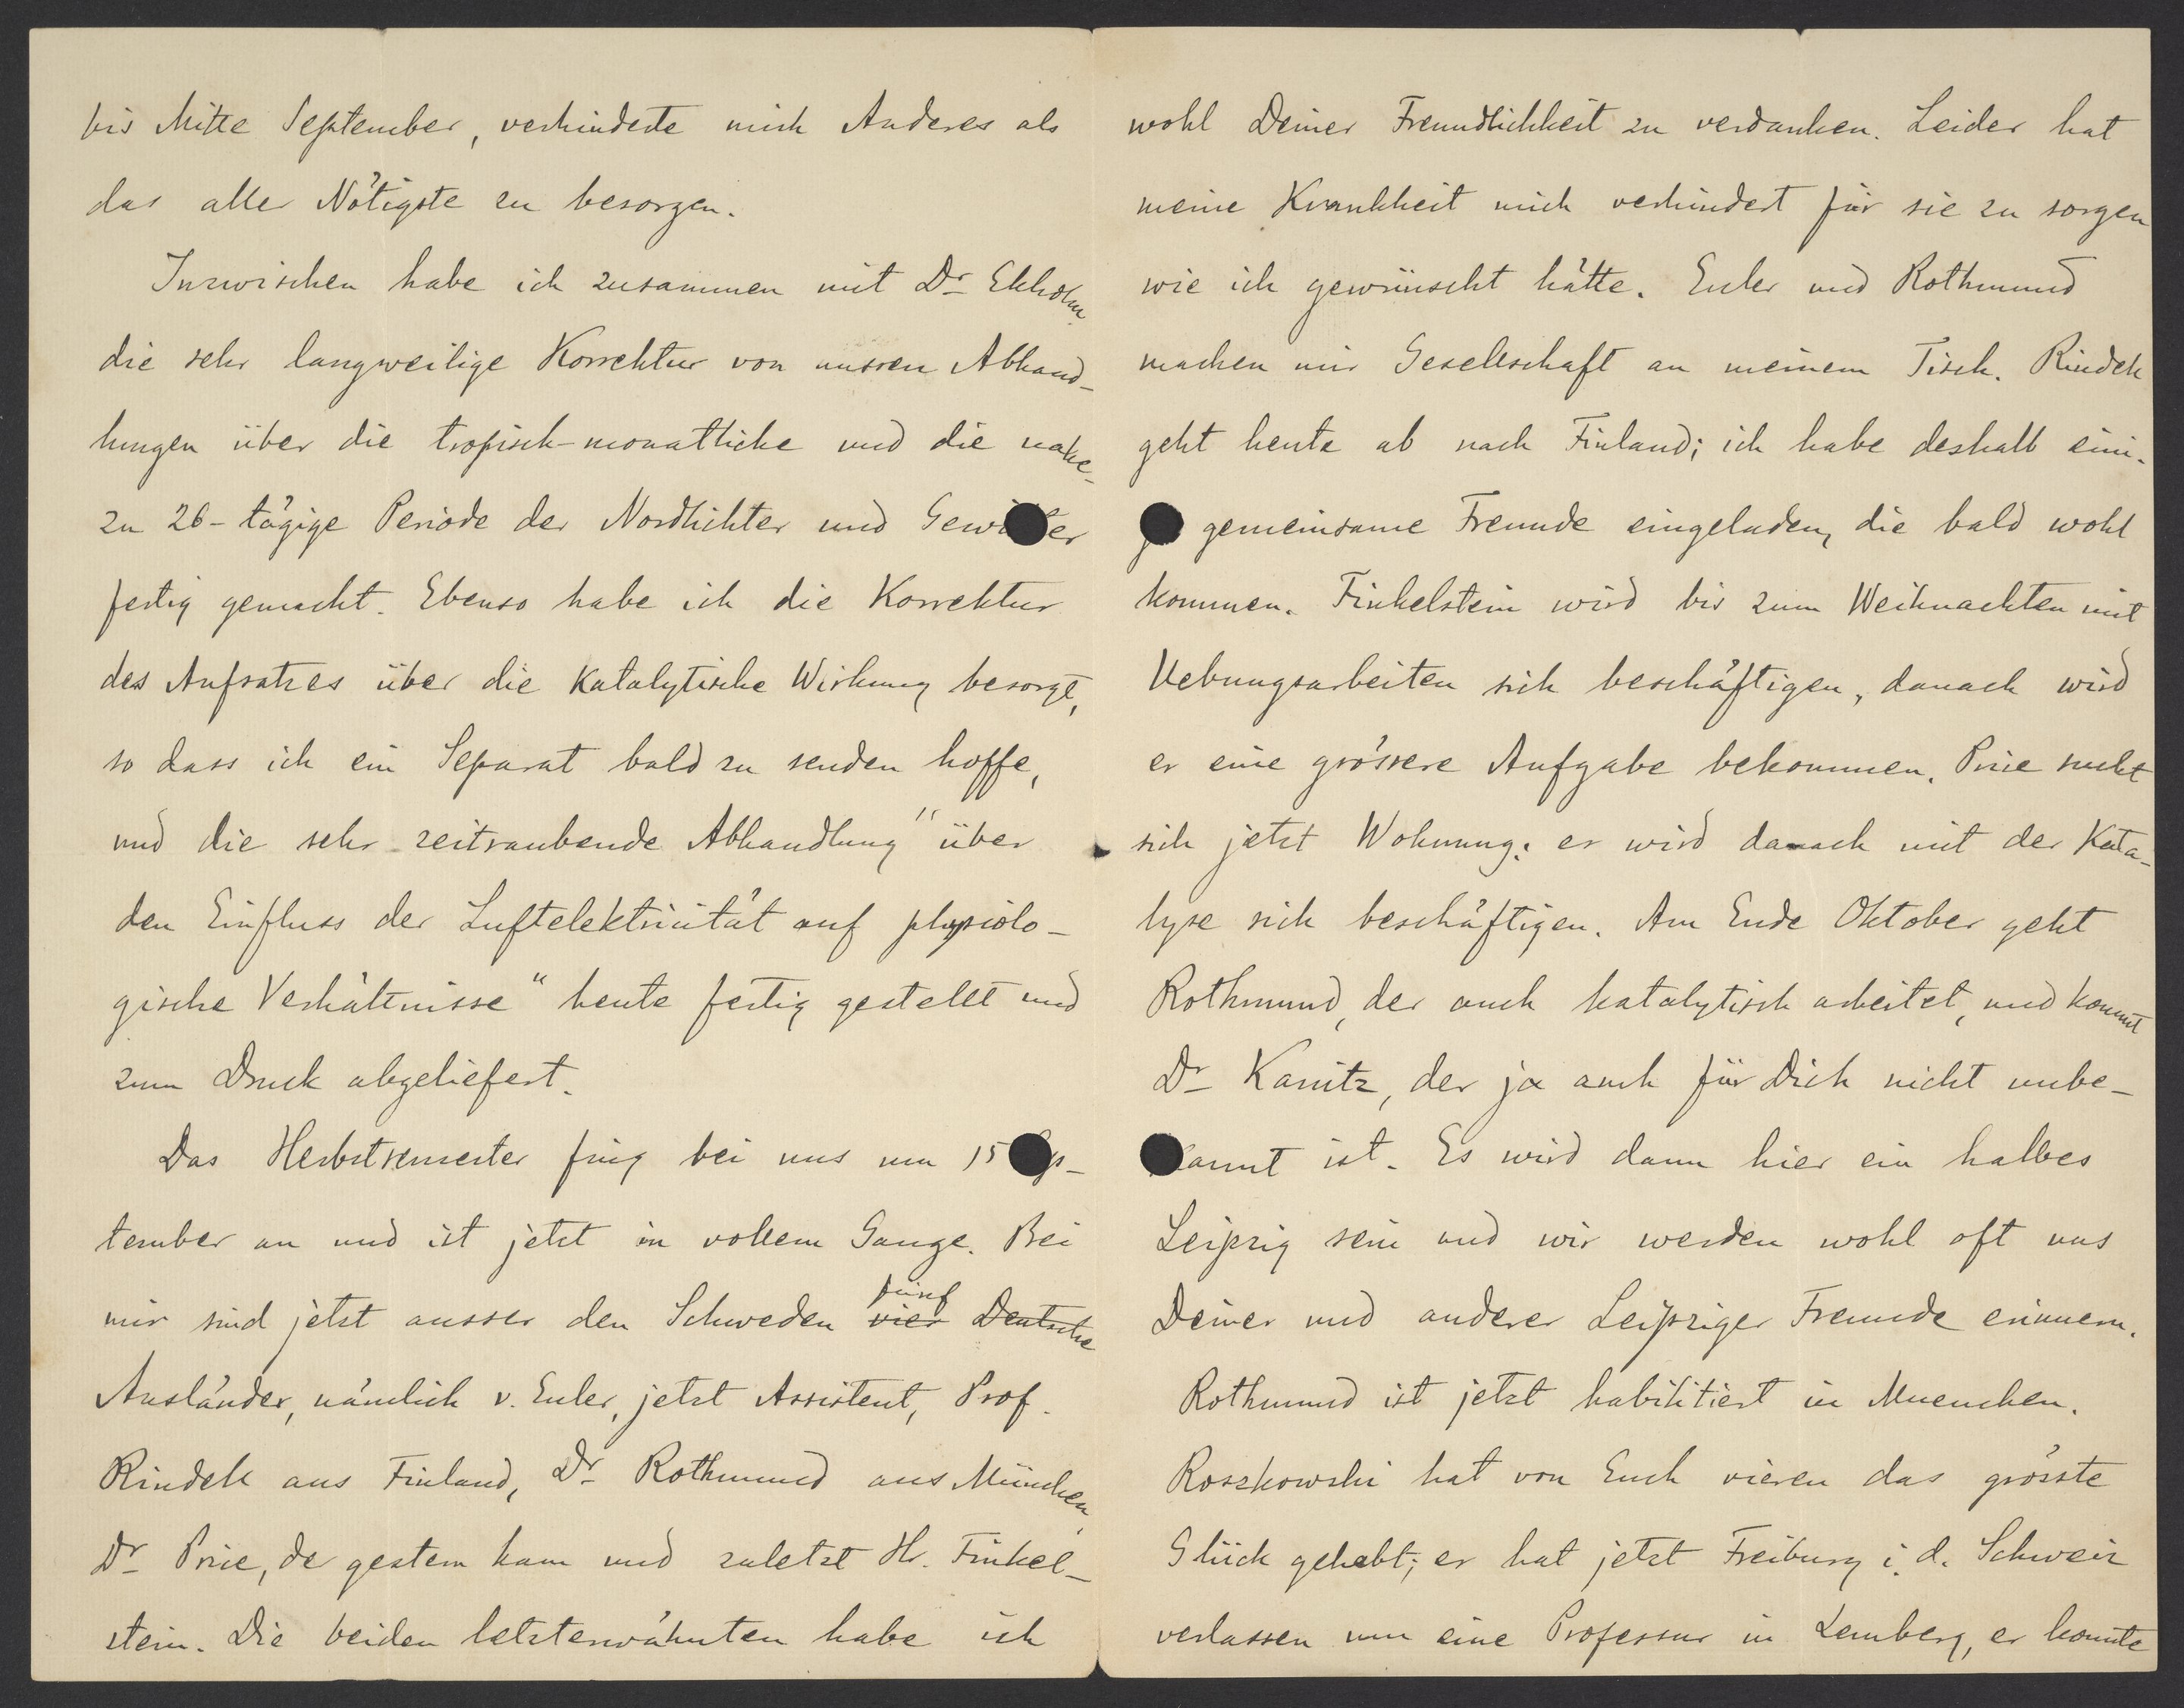 bis Mitte September, verhinderte mich Anderes als
das aller Nötigste zu besorgen.
Inzwischen habe ich zusammen mit Dr Ekholm
die sehr langweilige Korrektur von unsren Abhand-
lungen über die tropisch-monatliche und die nahe-
zu 26-tägige Periode der Nordlichter und Gewitter
fertig gemacht. Ebenso habe ich die Korrektur
des Aufsatzes über die katalytische Wirkung besorgt,
so dass ich ein Separat bald zu senden hoffe,
und die sehr zeitraubende Abhandlung "über
den Einfluss der Luftelektricität auf physiolo-
gische Verhältnisse" heute fertig gestellt und
zum Druck abgeliefert.
Das Herbstsemester fing bei uns um 15 Sep-
tember an und ist jetzt in vollem Gange. Bei
mir sind jetzt ausser den Schweden fünf vier Deutsche
Ausländer, nämlich v. Euler, jetzt Assistent, Prof.
Rindell aus Finland, Dr Rothmund aus München,
Dr Price, de gestern kam und zuletzt Hr. Finkel-
stein. Die beiden letzterwähnten habe ich
wohl Deiner Freundlichkeit zu verdanken. Leider hat
meine Krankheit mich verhindert für sie zu sorgen
wie ich gewünscht hätte. Euler und Rothmund
machen mir Gesellschaft an meinem Tisch. Rindell
geht heute ab nach Finland; ich habe deshalb eini-
ge gemeinsame Freunde eingeladen, die bald wohl
kommen. Finkelstein wird bis zum Weihnachten mit
Uebungsarbeiten sich beschäftigen, danach wird
er eine grössere Aufgabe bekommen. Price sucht
sich jetzt Wohnung; er wird danach mit der Kata-
lyse sich beschäftigen. Am Ende Oktober geht
Rothmund, der auch katalytisch arbeitet, und kommt
Dr Kanitz, der ja auch für Dich nicht unbe-
kannt ist. Es wird dann hier ein halbes
Leipzig sein und wir werden wohl oft uns
Deiner und anderer Leipziger Freunde erinnern.
Rothmund ist jetzt habilitiert in Muenchen.
Roszkowski hat von Euch vieren das grösste
Glück gehabt; er hat jetzt Freiburg i. d. Schweiz
verlassen um eine Professur in Lemberg, er konnte